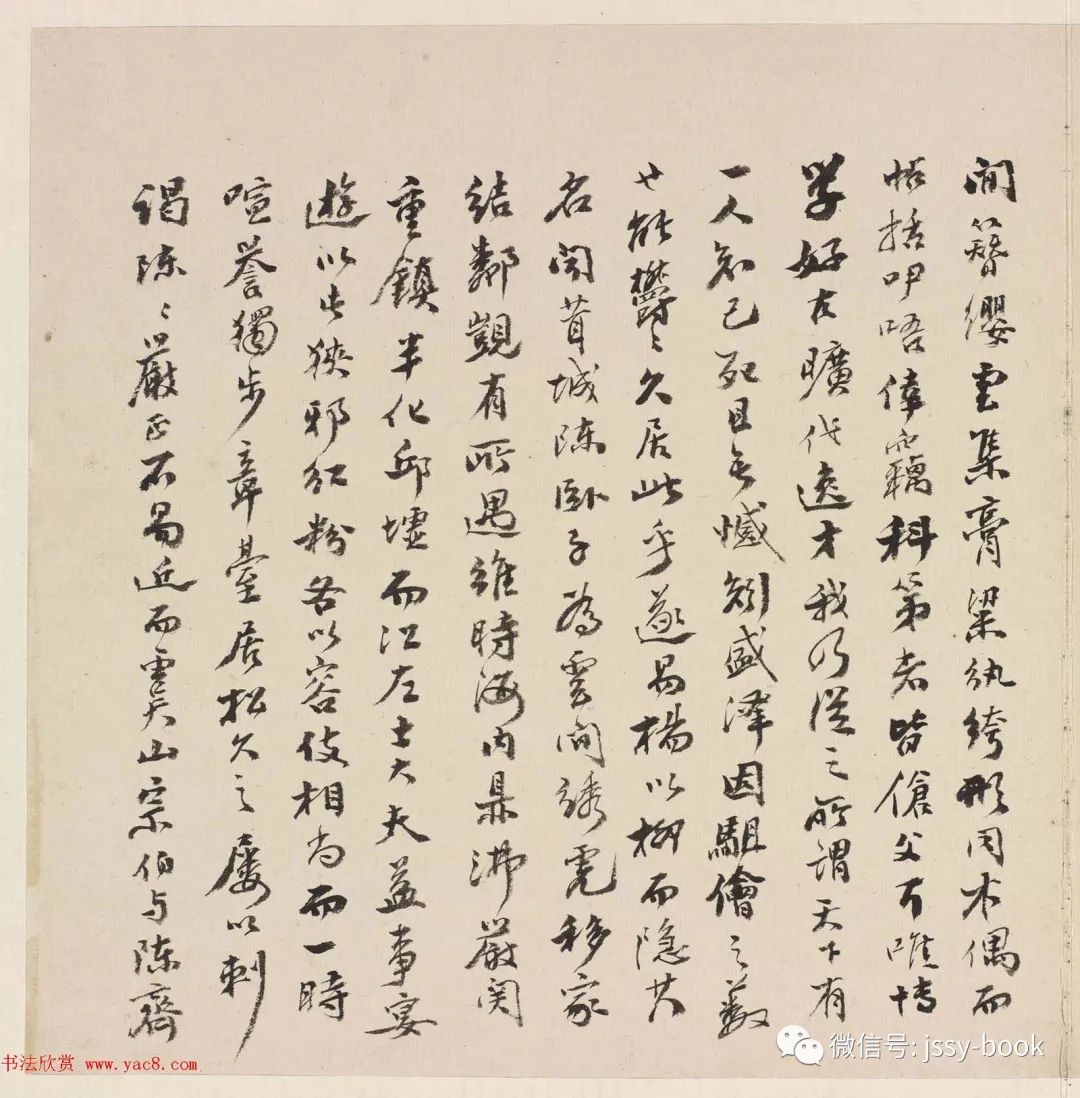 间簪纓雲集膏粱紈絝形同木偶而
帖括呷唔倖竊科第者皆傖父耳唯博
學好古曠代逸才我乃從之所謂天下有
一人知己死且無憾矧盛澤因駔儈之藪
也能鬱〻久居此乎遂易楊以柳而隱其
名聞茸城陳臥子為雲間繡虎移家
結鄰覬有所遇維時海内鼎沸嚴関
重鎮半化邱墟而江左士大夫益事宴
遊以此狹邪紅粉各以容伎相尚而一時
喧譽獨步章臺居松久之屢以刺
謁陳〻嚴正不易近而虞山宗伯与陳齊
书法欣赏 www.yac8.com
微信号: jssy-book